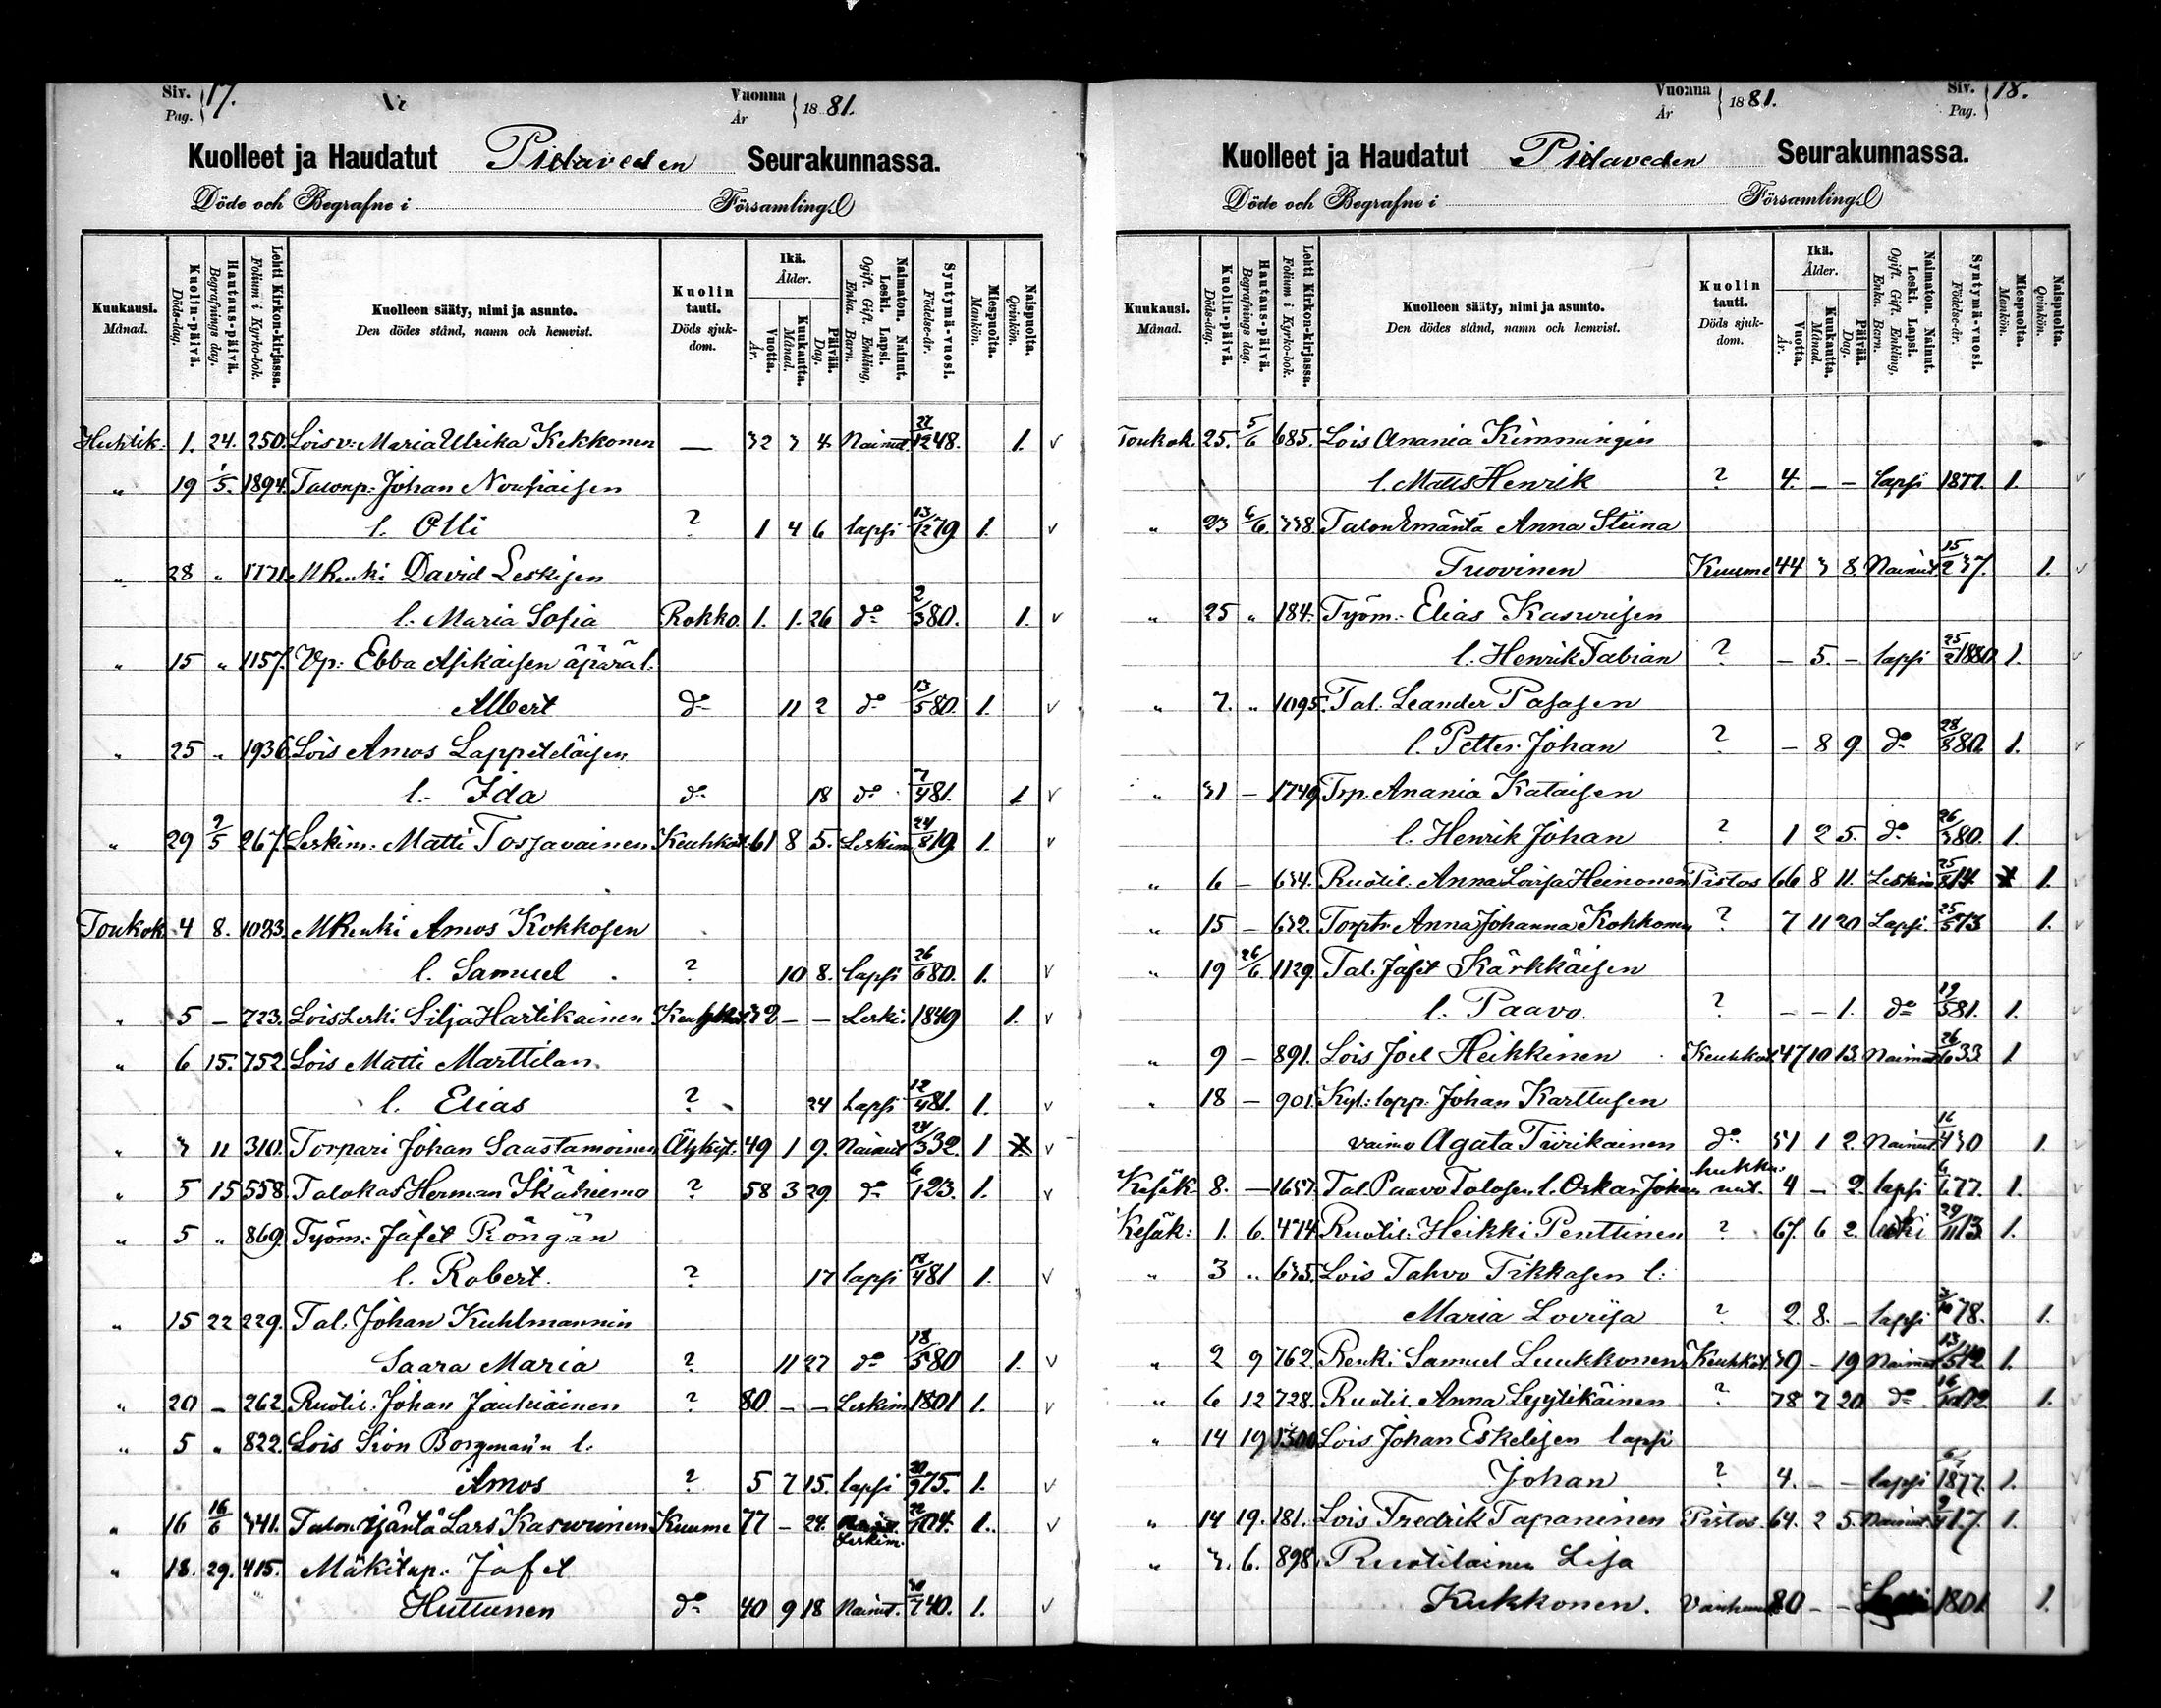 Siv. Pag. 17. Vuonna År 1881.
Kuolleet ja Haudatut Pielaveden Seurakunnassa.
Döde och Begrafne i Församling.
Kuukausi. Månad. Kuolin-päivä. Döds-dag. Hautaus-päivä. Begrafnings dag. Lehti Kirkon-kirjassa. Folium i Kyrko-bok. Kuolleen sääty, nimi ja asunto. Den dödes stånd, namn och hemvist. Kuolin tauti. Döds sjukdom. Ikä. Ålder. Vuotta. År. Kuukautta. Månad. Päivää. Dag. Naimaton. Nainut. Leski. Lapsi. Ogift. Gift. Enkling, Enka. Barn. Syntymä-vuosi. Födelse-år. Miespuolta. Mankön. Naispuolta. Qvinkön.
Huhtik. 1. 24. 250. Lois v: Maria Ulrika Kekkonen — 32 3 4 Nainut 27/12 48. 1. v
" 19 1/5. 1894. Talonp: Johan Nousiaisen
l. Olli ? 1 4 6 lapsi 13/12 79 1. v
" 28 " 1171. MRenki David Leskisen
l. Maria Sofia Rokko. 1. 1. 26 do 2/3 80. 1. v
" 15 " 1157. Vp: Ebba Asikaisen äpärä l.
Albert do 11 2 do 13/5 80. 1. v
" 25 " 1936. Lois Amos Lappeteläisen
l. Ida do 18 do 7/4 81. 1 v
" 29 2/5 267. Leskim: Matti Tossavainen Keuhkot. 61 8 5. Leskim 24/8 19. 1. v
Toukok. 4 8. 1023. MRenki Amos Kokkosen
l. Samuel ? 10 8. lapsi 26/6 80. 1. v
" 5 — 723. Lois Leski Silja Hartikainen — — Leski. 1849 1. v
" 6 15. 752. Lois Matti Marttilan
l. Elias ? 24 Lapsi 12/4 81. 1. v
" 3 11 310. Torpari Johan Saastamoinen 49 1 9. Nainut 24/3 32. 1 v
" 5 15 558. Talokas Herman Ikäheimo ? 58 3 29. do 6/1 23. 1. v
" 5 " 869. Työm: Jafet Röngän
l. Robert. ? 17 lapsi 18/4 81 1. v
" 15 22 229. Tal. Johan Kuhlmannin
Saara Maria ? 11 27 do 18/5 80 1. v
" 20 — 262. Ruotil. Johan Jauhiainen ? 80 — — Leskim 1801 1. v
" 5 " 822. Lois Sion Borgman'n l.
Amos ? 5 7 15. lapsi 20/9 75. 1. v
" 16 16/6 341. Talon isäntä Lars Kasurinen Kuume 77 — 24. Leskim. 1. v
" 18. 29. 415. Mäkitup. Jafet
Huttunen do 40 9 18 Nainut. 30/7 40. 1. v
Vuonna År 1881. Siv. Pag. 18.
Kuolleet ja Haudatut Pielaveden Seurakunnassa.
Döde och Begrafne i Församling.
Kuukausi. Månad. Kuolin-päivä. Döds-dag. Hautaus-päivä. Begrafnings dag. Lehti Kirkon-kirjassa. Folium i Kyrko-bok. Kuolleen sääty, nimi ja asunto. Den dödes stånd, namn och hemvist. Kuolin tauti. Döds sjukdom. Ikä. Ålder. Vuotta. År. Kuukautta. Månad. Päivää. Dag. Naimaton. Nainut. Leski. Lapsi. Ogift. Gift. Enkling, Enka. Barn. Syntymä-vuosi. Födelse-år. Miespuolta. Mankön. Naispuolta. Qvinkön.
Toukok. 25. 5/6 685. Lois Anania Kimmingin
l. Matts Henrik ? 4. — — lapsi 1877. 1. v
" 23 6/6. 338. Talon Emäntä Anna Stiina
Tuovinen Kuume 44 3 8. Nainut 15/2 37. 1. v
" 25 " 184. Työm: Elias Kasurisen
l. Henrik Fabian ? — 5. — lapsi 25/2 1880 1. v
" 7. " 1095. Tal. Leander Pasasen
l. Petter Johan ? — 8 9. do 28/8 80. 1. v
" 31 — 1749. Trp. Anania Kataisen
l. Henrik Johan ? 1 2 5. do 26/3 80. 1. v
" 6 — 634. Ruotil. Anna Loviisa Heinonen Pistos 66 8 11. Leskim 25/8 14. 1. v
" 15 — 632. Torptr. Anna Johanna Kokkonen ? 7 11 20 Lapsi. 25/5 73 1. v
" 19 26/6. 1129. Tal. Jafet Kärkkäisen
l. Paavo. ? — — 1. do 19/5 81. 1. v
" 9 — 891. Lois Joel Heikkinen Keuhkot. 47 10 13. Nainut 26/6 33. 1 v
" 18 — 901. Kyl: lopp. Johan Karttusen
vaimo Agata Tiirikainen do 51 1 2. Nainut. 16/4 30 1. v
Kesäk. 8. — 1657. Tal. Paavo Tolosen l. Oskar Johan hukkunut. 4 — 2. lapsi 6/6 77. 1. v
Kesäk: 1. 6. 474. Ruotil. Heikki Penttinen ? 67. 6 2. leski 29/11 13. 1. v
" 3 " 635. Lois Tahvo Tikkasen l:
Maria Loviisa ? 2. 8. — lapsi 78. 1. v
" 2 9 762. Renki Samuel Luukkonen Keuhkot. 39 — 19 Nainut 13/5 42 1. v
" 6 12 728. Ruotil. Anna Lyytikäinen ? 78 7 20 do 1. v
" 14 19 1300. Lois Johan Eskelisen lapsi
Johan ? 4. — — lapsi 1877. 1. v
" 14 19. 181. Lois Fredrik Tapaninen Pistos. 64. 2 5. Nainut. 9/4 17. 1. v
" 3. 6. 898. Ruotilainen Lisa
Kukkonen. 80 — — 1801. 1. v